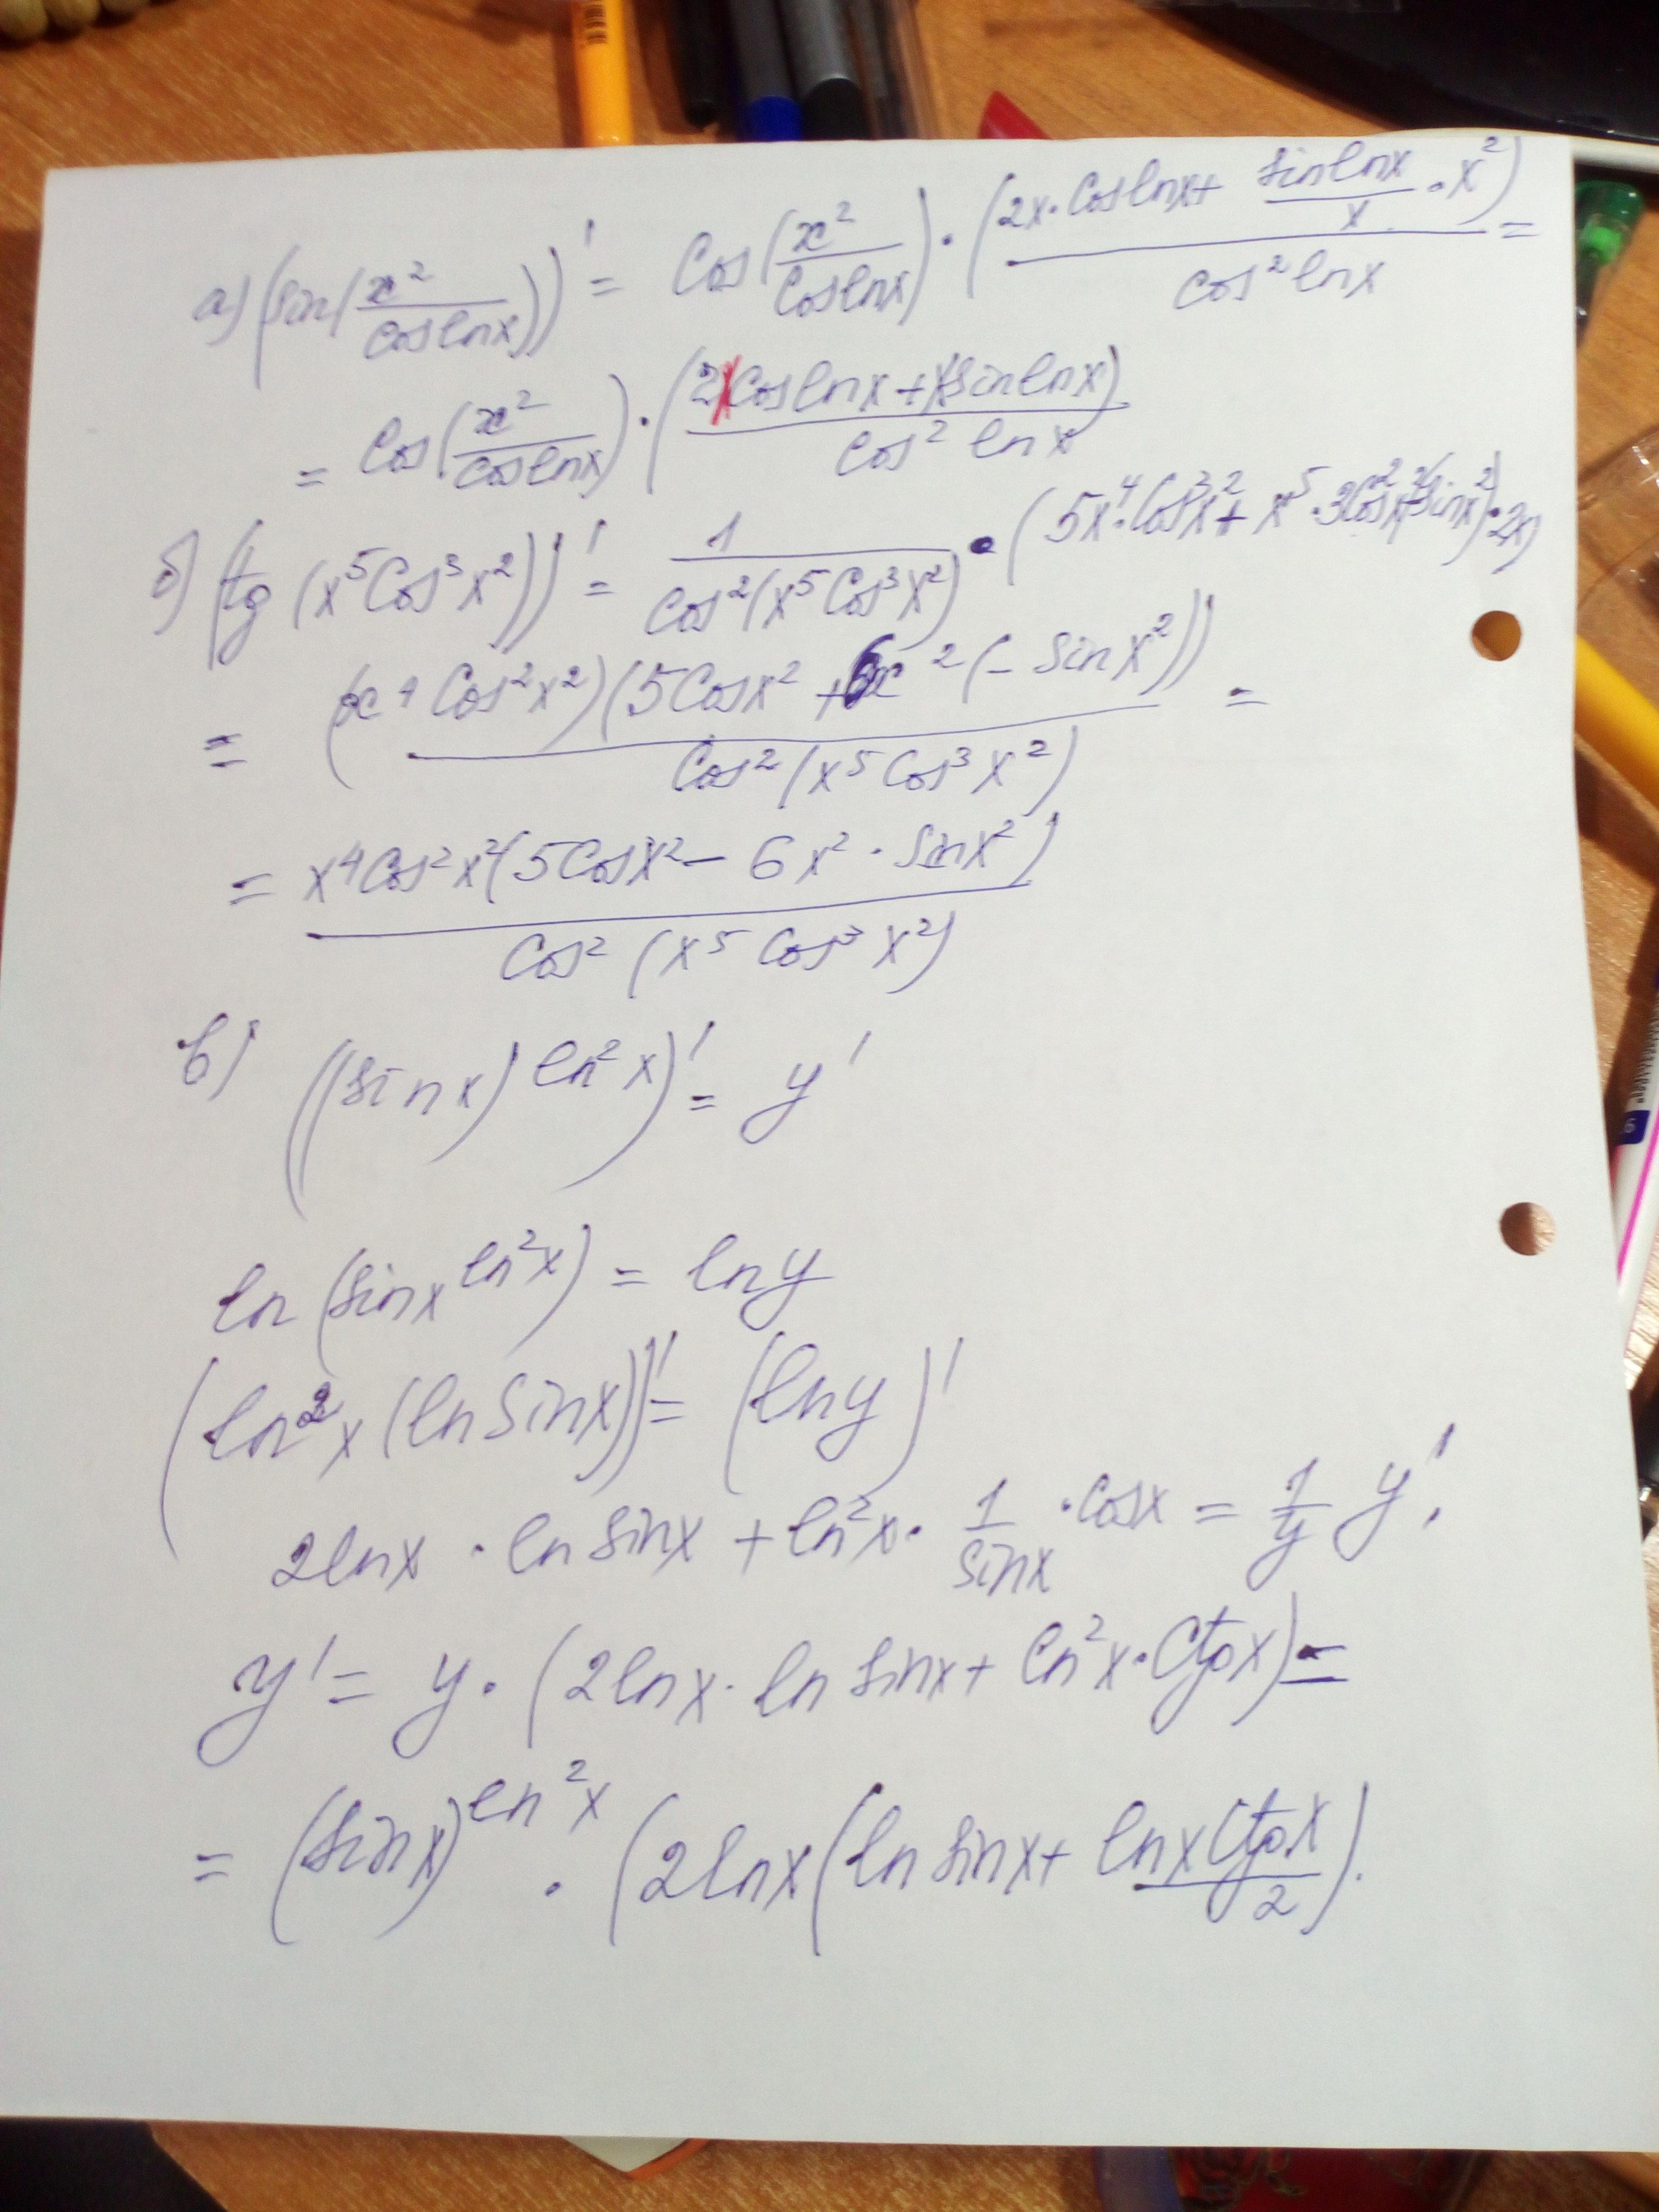 а) (sin(x²/cos lnx))' = Cos(x²/Cos lnx) · (2x·Cos lnx + sin lnx/x · x²)/cos² lnx =
= Cos(x²/cos lnx) · (2xCos lnx + x sin lnx)/Cos² ln x
б) (tg (x⁵Cos³x²))' = 1/Cos²(x⁵Cos³x²) · (5x⁴·Cos³x² + x⁵·3Cos²x²(-sinx²)·2x)
= (x⁴ Cos²x²)(5Cosx² + 6x²(- sinx²))/Cos²(x⁵Cos³x²) =
= x⁴Cos²x²(5Cosx² - 6x² · sinx²)/Cos² (x⁵ Cos³ x²)
в) ((sin x)^ln²x)' = y'
ln (sinx^ln²x) = lny
(ln²x (ln sinx))' = (lny)'
2lnx · ln sinx + ln²x · 1/sinx · cosx = 1/y y'.
y' = y · (2lnx · ln sinx + ln²x · Ctgx) =
= (sinx)^ln²x · (2lnx (ln sinx + lnx Ctgx/2).